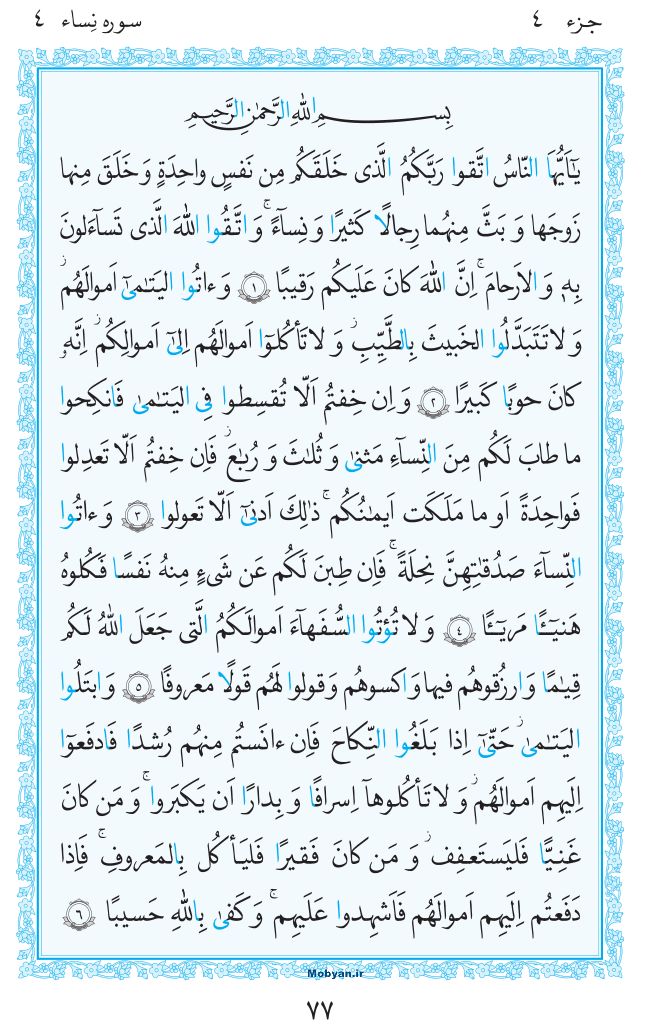 جزء ٤ سوره نِساء ٤
بِسمِ اللهِ الرَّحمٰنِ الرَّحیمِ
یٰٓاَیُّهَا النّاسُ اتَّقوا رَبَّکُمُ الَّذی خَلَقَکُم مِن نَفسٍ واحِدَةٍ وَ خَلَقَ مِنها
زَوجَها وَ بَثَّ مِنهُما رِجالًا کَثیرًا وَ نِسآءً ۚ وَ اتَّقُوا اللهَ الَّذی تَسآءَلونَ
بِهٖ وَ الاَرحامَ ۚ اِنَّ اللهَ کانَ عَلَیکُم رَقیبًا ١ وَ ءاتُوا الیَتـٰمیٰٓ اَموالَهُم ۖ
وَ لا تَتَبَدَّلُوا الخَبیثَ بِالطَّیِّبِ ۖ وَ لا تَأکُلوٓا اَموالَهُم اِلیٰٓ اَموالِکُم ۚ اِنَّهٗ
کانَ حوبًا کَبیرًا ٢ وَ اِن خِفتُم اَلّا تُقسِطوا فِی الیَتـٰمیٰ فَانکِحوا
ما طابَ لَکُم مِنَ النِّسآءِ مَثنیٰ وَ ثُلاثَ وَ رُباعَ ۖ فَاِن خِفتُم اَلّا تَعدِلوا
فَواحِدَةً اَو ما مَلَکَت اَیمـٰنُکُم ۚ ذٰلِکَ اَدنیٰٓ اَلّا تَعولوا ٣ وَ ءاتُوا
النِّسآءَ صَدُقـٰتِهِنَّ نِحلَةً ۚ فَاِن طِبنَ لَکُم عَن شَیءٍ مِنهُ نَفسًا فَکُلوهُ
هَنیـٓـًٔا مَریـٓـًٔا ٤ وَ لا تُؤتُوا السُّفَهآءَ اَموالَکُمُ الَّتی جَعَلَ اللهُ لَکُم
قِیـٰمًا وَ ارزُقوهُم فیها وَ اکسوهُم وَ قولوا لَهُم قَولًا مَعروفًا ٥ وَ ابتَلُوا
الیَتـٰمیٰ حَتّیٰٓ اِذا بَلَغُوا النِّکاحَ فَاِن ءانَستُم مِنهُم رُشدًا فَادفَعوٓا
اِلَیهِم اَموالَهُم ۖ وَ لا تَأکُلوهآ اِسرافًا وَ بِدارًا اَن یَکبَروا ۚ وَ مَن کانَ
غَنِیًّا فَلیَستَعفِف ۖ وَ مَن کانَ فَقیرًا فَلیَأکُل بِالمَعروفِ ۚ فَاِذا
دَفَعتُم اِلَیهِم اَموالَهُم فَاَشهِدوا عَلَیهِم ۚ وَ کَفیٰ بِاللهِ حَسیبًا ٦
Mobyan.ir
٧٧